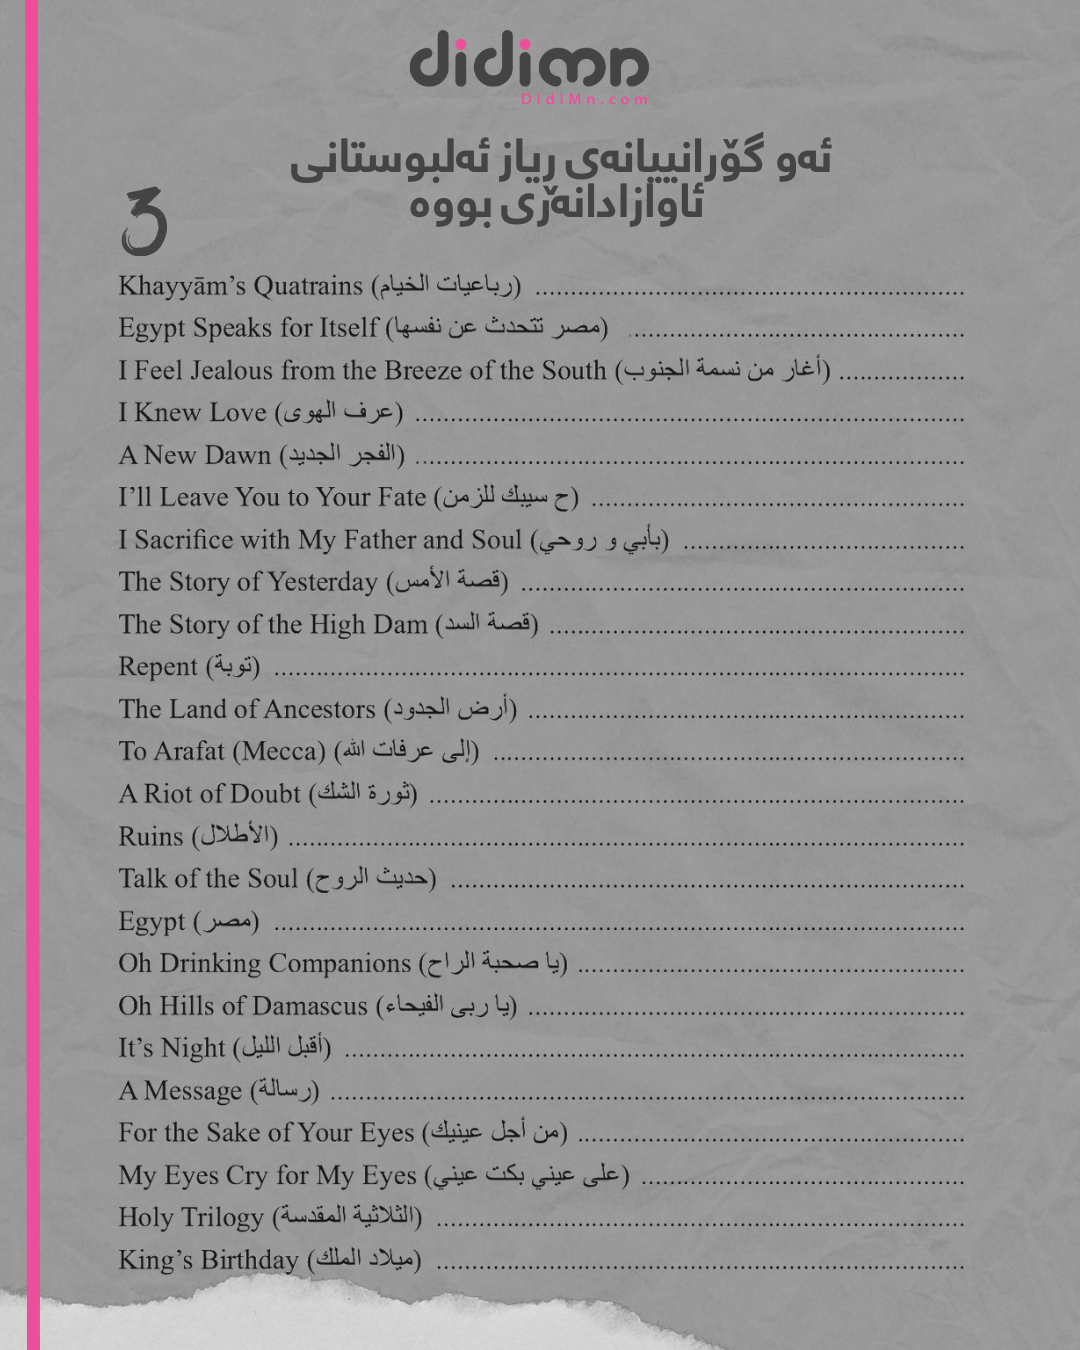 didimn
DidiMn.com
ئەو گۆرانییانەی ریاز ئەلبوستانی
ئاوازادانەڕی بووە
3
Khayyām’s Quatrains (رباعيات الخيام) ..............................................................
Egypt Speaks for Itself (مصر تتحدث عن نفسها) ................................................
I Feel Jealous from the Breeze of the South (أغار من نسمة الجنوب) ..................
I Knew Love (عرف الهوى) ...............................................................................
A New Dawn (الفجر الجديد) ...............................................................................
I’ll Leave You to Your Fate (ح سيبك للزمن) ......................................................
I Sacrifice with My Father and Soul (بأبي و روحي) .........................................
The Story of Yesterday (قصة الأمس) ................................................................
The Story of the High Dam (قصة السد) ............................................................
Repent (توبة) ....................................................................................................
The Land of Ancestors (أرض الجدود) ...............................................................
To Arafat (Mecca) (إلى عرفات الله) ....................................................................
A Riot of Doubt (ثورة الشك) .............................................................................
Ruins (الأطلال) ..................................................................................................
Talk of the Soul (حديث الروح) ..........................................................................
Egypt (مصر) ....................................................................................................
Oh Drinking Companions (يا صحبة الراح) ........................................................
Oh Hills of Damascus (يا ربى الفيحاء) ...............................................................
It’s Night (أقبل الليل) .........................................................................................
A Message (رسالة) ............................................................................................
For the Sake of Your Eyes (من أجل عينيك) ........................................................
My Eyes Cry for My Eyes (على عيني بكت عيني) ...............................................
Holy Trilogy (الثلاثية المقدسة) ............................................................................
King’s Birthday (ميلاد الملك) ............................................................................